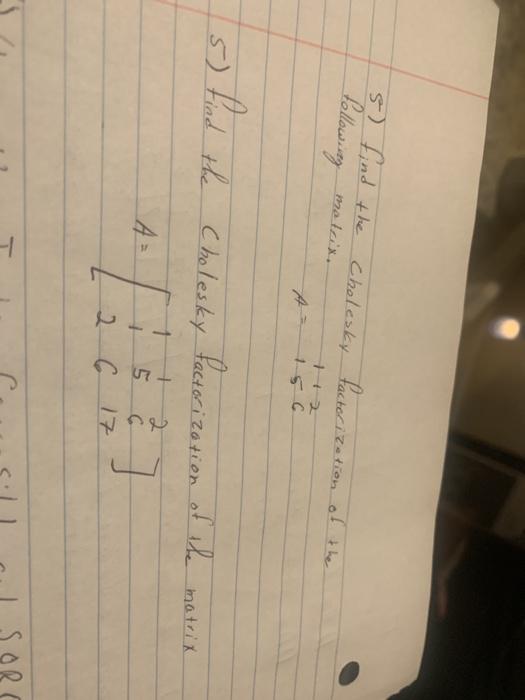 5) find the Cholesky factorization of the
following matrix.
A = 1 1 2
1 5 6
5) find the Cholesky factorization of the matrix
A = [ 1 1 2
1 5 6
2 6 17 ]